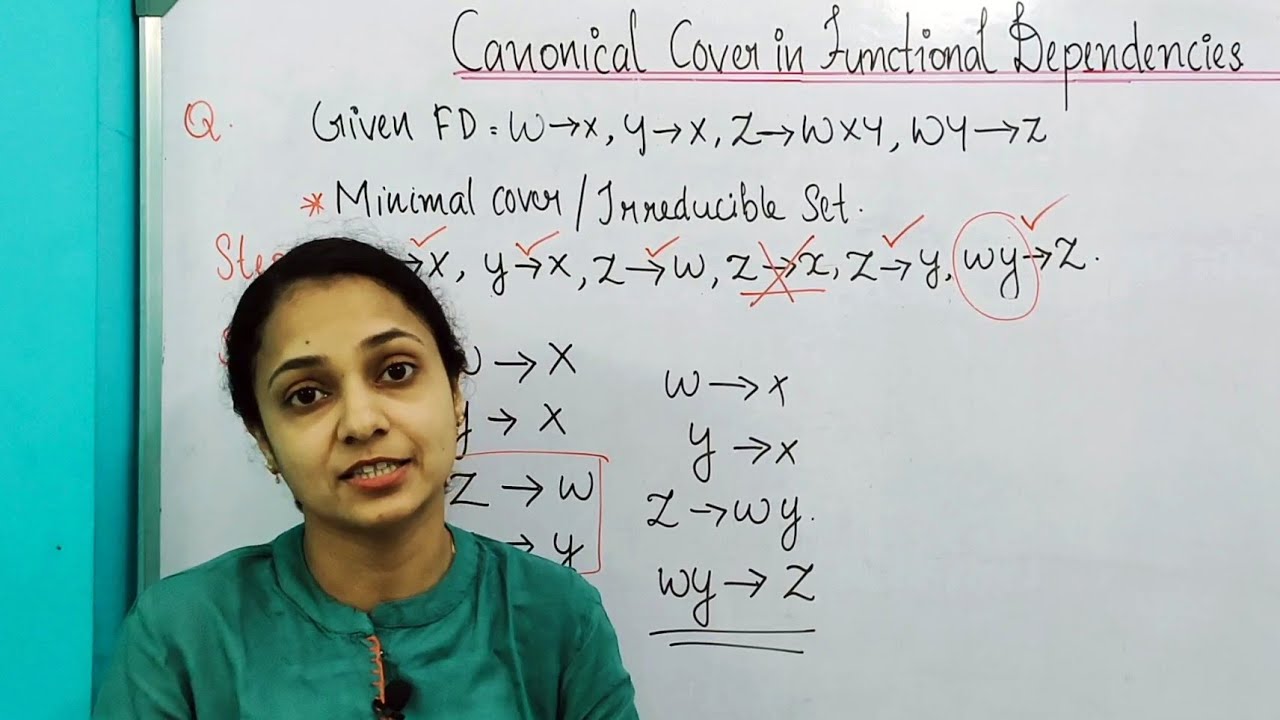 Canonical Cover in Functional Dependencies
Q. Given FD = W→X, Y→X, Z→WXY, WY→Z
* Minimal cover / Irreducible Set.
→X, Y→X, Z→W, Z→X, Z→Y, WY→Z.
→ X
Y → X
Z → W
→ Y
W → X
Y → X
Z → WY.
WY → Z